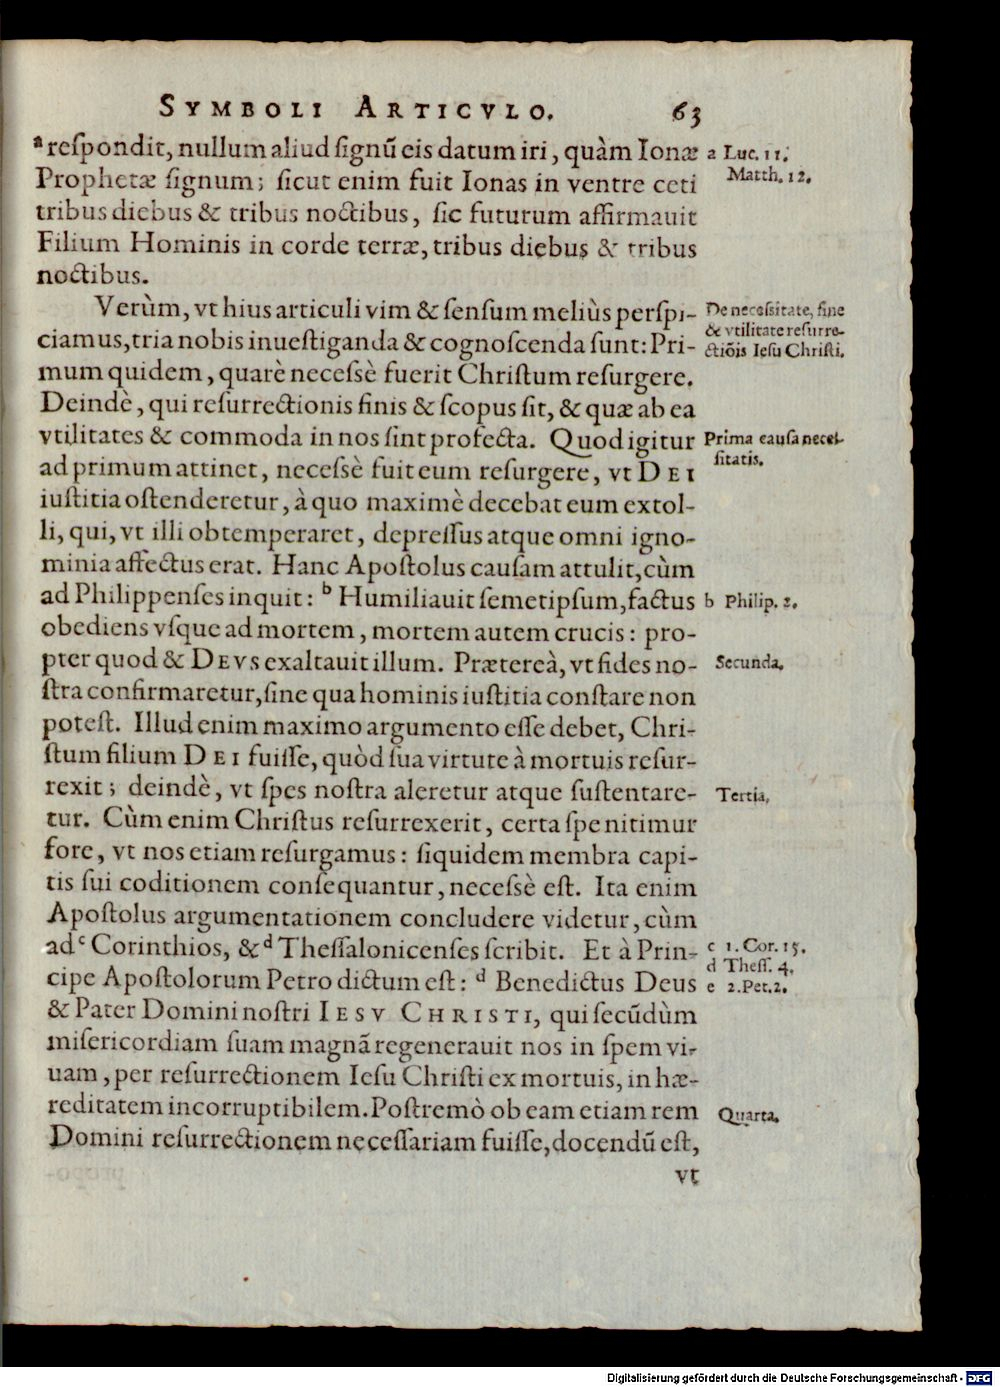 SYMBOLI ARTICVLO. 63
ᵃ reſpondit, nullum aliud ſignũ eis datum iri, quàm Ionæ
a Luc. 11.
Matth. 12.
Prophetæ ſignum; ſicut enim fuit Ionas in ventre ceti
tribus diebus & tribus noctibus, ſic futurum affirmauit
Filium Hominis in corde terræ, tribus diebus & tribus
noctibus.
Verùm, vt hius articuli vim & ſenſum meliùs perſpi-
De neceſsitate, fine
& vtilitate reſurre-
ctiõis Ieſu Chriſti.
ciamus, tria nobis inueſtiganda & cognoſcenda ſunt: Pri-
mum quidem, quarè neceſsè fuerit Chriſtum reſurgere.
Deindè, qui reſurrectionis finis & ſcopus ſit, & quæ ab ea
vtilitates & commoda in nos ſint profecta. Quod igitur
Prima cauſa neceſ-
ſitatis.
ad primum attinet, neceſsè fuit eum reſurgere, vt DEI
iuſtitia oſtenderetur, à quo maximè decebat eum extol-
li, qui, vt illi obtemperaret, depreſſus atque omni igno-
minia affectus erat. Hanc Apoſtolus cauſam attulit, cùm
ad Philippenſes inquit: ᵇ Humiliauit ſemetipſum, factus
b Philip. 2.
obediens vſque ad mortem, mortem autem crucis: pro-
pter quod & DEVS exaltauit illum. Prætereà, vt fides no-
Secunda.
ſtra confirmaretur, ſine qua hominis iuſtitia conſtare non
poteſt. Illud enim maximo argumento eſſe debet, Chri-
ſtum filium DEI fuiſſe, quòd ſua virtute à mortuis reſur-
rexit; deindè, vt ſpes noſtra aleretur atque ſuſtentare-
Tertia.
tur. Cùm enim Chriſtus reſurrexerit, certa ſpe nitimur
fore, vt nos etiam reſurgamus: ſiquidem membra capi-
tis ſui coditionem conſequantur, neceſsè eſt. Ita enim
Apoſtolus argumentationem concludere videtur, cùm
ad ᶜ Corinthios, & ᵈ Theſſalonicenſes ſcribit. Et à Prin-
c 1. Cor. 15.
d Theſſ. 4.
cipe Apoſtolorum Petro dictum eſt: ᵈ Benedictus Deus
e 2. Pet. 2.
& Pater Domini noſtri IESV CHRISTI, qui ſecũdùm
miſericordiam ſuam magnã regenerauit nos in ſpem vi-
uam, per reſurrectionem Ieſu Chriſti ex mortuis, in hæ-
reditatem incorruptibilem. Poſtremò ob eam etiam rem
Quarta.
Domini reſurrectionem neceſſariam fuiſſe, docendũ eſt,
vt
Digitalisierung gefördert durch die Deutsche Forschungsgemeinschaft - DFG